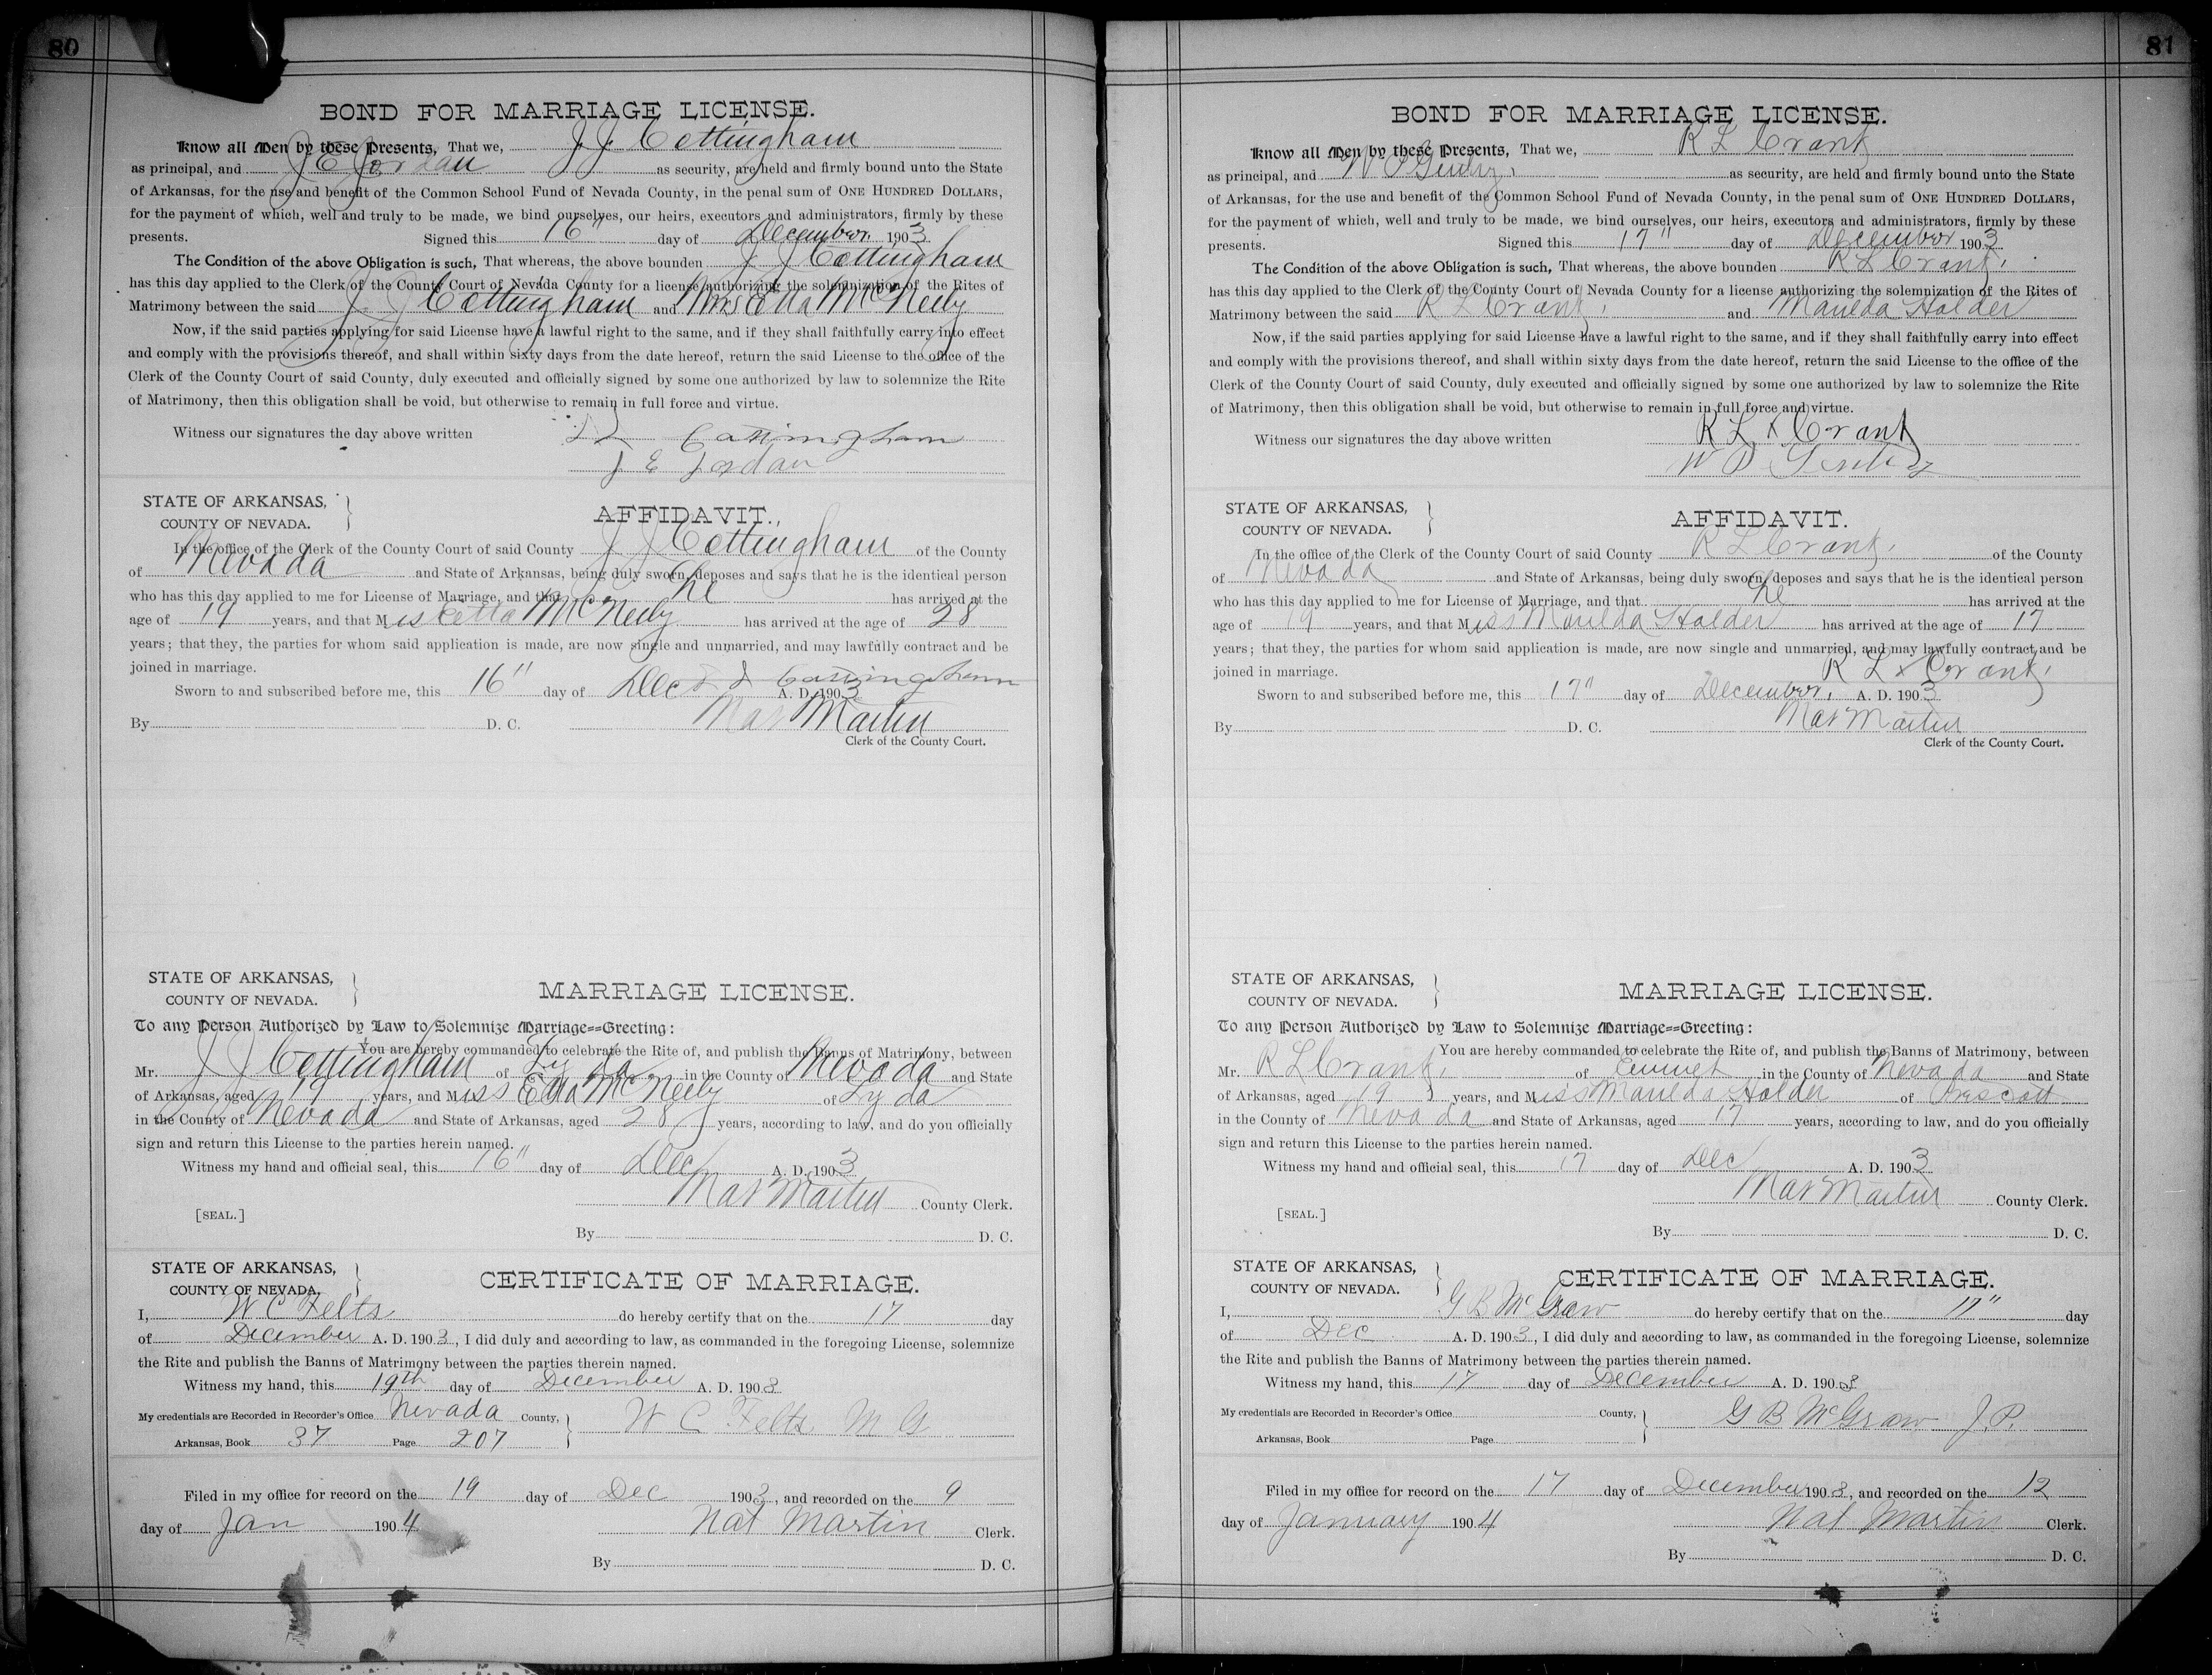 80
BOND FOR MARRIAGE LICENSE.
Know all Men by these Presents, That we, J. J. Cottingham
as principal, and J E Jordan as security, are held and firmly bound unto the State
of Arkansas, for the use and benefit of the Common School Fund of Nevada County, in the penal sum of ONE HUNDRED DOLLARS,
for the payment of which, well and truly to be made, we bind ourselves, our heirs, executors and administrators, firmly by these
presents. Signed this 16" day of December 1903
The Condition of the above Obligation is such, That whereas, the above bounden J J Cottingham
has this day applied to the Clerk of the County Court of Nevada County for a license authorizing the solemnization of the Rites of
Matrimony between the said J. J Cottingham and Mrs Etta McNeely
Now, if the said parties applying for said License have a lawful right to the same, and if they shall faithfully carry into effect
and comply with the provisions thereof, and shall within sixty days from the date hereof, return the said License to the office of the
Clerk of the County Court of said County, duly executed and officially signed by some one authorized by law to solemnize the Rite
of Matrimony, then this obligation shall be void, but otherwise to remain in full force and virtue.
Witness our signatures the day above written
Cottingham
J E Jordan
STATE OF ARKANSAS,
COUNTY OF NEVADA.
AFFIDAVIT.
In the office of the Clerk of the County Court of said County J J Cottingham of the County
of Nevada and State of Arkansas, being duly sworn, deposes and says that he is the identical person
who has this day applied to me for License of Marriage, and that he has arrived at the
age of 19 years, and that Miss Etta McNeely has arrived at the age of 28
years; that they, the parties for whom said application is made, are now single and unmarried, and may lawfully contract and be
joined in marriage.
J J Cottingham
Sworn to and subscribed before me, this 16" day of Dec A. D. 1903
By D. C. Nat Martin
Clerk of the County Court.
STATE OF ARKANSAS,
COUNTY OF NEVADA.
MARRIAGE LICENSE.
To any Person Authorized by Law to Solemnize Marriage==Greeting:
You are hereby commanded to celebrate the Rite of, and publish the Banns of Matrimony, between
Mr. J J Cottingham of Lyda in the County of Nevada and State
of Arkansas, aged 19 years, and Miss Etta McNeely of Lyda
in the County of Nevada and State of Arkansas, aged 28 years, according to law, and do you officially
sign and return this License to the parties herein named.
Witness my hand and official seal, this 16" day of Dec A. D. 1903
Nat Martin County Clerk.
[SEAL.]
By D. C.
STATE OF ARKANSAS,
COUNTY OF NEVADA.
CERTIFICATE OF MARRIAGE.
I, W C Felts do hereby certify that on the 17 day
of December A. D. 1903, I did duly and according to law, as commanded in the foregoing License, solemnize
the Rite and publish the Banns of Matrimony between the parties therein named.
Witness my hand, this 19th day of December A. D. 1903
My credentials are Recorded in Recorder's Office Nevada County,
Arkansas, Book 37 Page 207
W C Felts M G
Filed in my office for record on the 19 day of Dec 1903, and recorded on the 9
day of Jan 1904 Nat Martin Clerk.
By D. C.
81
BOND FOR MARRIAGE LICENSE.
Know all Men by these Presents, That we, R L Crank
as principal, and W P Gentry. as security, are held and firmly bound unto the State
of Arkansas, for the use and benefit of the Common School Fund of Nevada County, in the penal sum of ONE HUNDRED DOLLARS,
for the payment of which, well and truly to be made, we bind ourselves, our heirs, executors and administrators, firmly by these
presents. Signed this 17" day of December 1903
The Condition of the above Obligation is such, That whereas, the above bounden R L Crank
has this day applied to the Clerk of the County Court of Nevada County for a license authorizing the solemnization of the Rites of
Matrimony between the said R L Crank and Maulda Holder
Now, if the said parties applying for said License have a lawful right to the same, and if they shall faithfully carry into effect
and comply with the provisions thereof, and shall within sixty days from the date hereof, return the said License to the office of the
Clerk of the County Court of said County, duly executed and officially signed by some one authorized by law to solemnize the Rite
of Matrimony, then this obligation shall be void, but otherwise to remain in full force and virtue.
Witness our signatures the day above written R L x Crank
W P Gentry
STATE OF ARKANSAS,
COUNTY OF NEVADA.
AFFIDAVIT.
In the office of the Clerk of the County Court of said County R L Crank of the County
of Nevada and State of Arkansas, being duly sworn, deposes and says that he is the identical person
who has this day applied to me for License of Marriage, and that he has arrived at the
age of 19 years, and that Miss Maulda Holder has arrived at the age of 17
years; that they, the parties for whom said application is made, are now single and unmarried, and may lawfully contract and be
joined in marriage.
R L x Crank
Sworn to and subscribed before me, this 17" day of December, A. D. 1903
By D. C. Nat Martin
Clerk of the County Court.
STATE OF ARKANSAS,
COUNTY OF NEVADA.
MARRIAGE LICENSE.
To any Person Authorized by Law to Solemnize Marriage==Greeting:
You are hereby commanded to celebrate the Rite of, and publish the Banns of Matrimony, between
Mr. R L Crank of Emmet in the County of Nevada and State
of Arkansas, aged 19 years, and Miss Maulda Holder of Prescott
in the County of Nevada and State of Arkansas, aged 17 years, according to law, and do you officially
sign and return this License to the parties herein named.
Witness my hand and official seal, this 17 day of Dec A. D. 1903
Nat Martin County Clerk.
[SEAL.]
By D. C.
STATE OF ARKANSAS,
COUNTY OF NEVADA.
CERTIFICATE OF MARRIAGE.
I, G B McGraw do hereby certify that on the 17" day
of Dec A. D. 1903, I did duly and according to law, as commanded in the foregoing License, solemnize
the Rite and publish the Banns of Matrimony between the parties therein named.
Witness my hand, this 17 day of December A. D. 1903
My credentials are Recorded in Recorder's Office County,
Arkansas, Book Page
G B McGraw J. P.
Filed in my office for record on the 17 day of December 1903, and recorded on the 12
day of January 1904 Nat Martin Clerk.
By D. C.